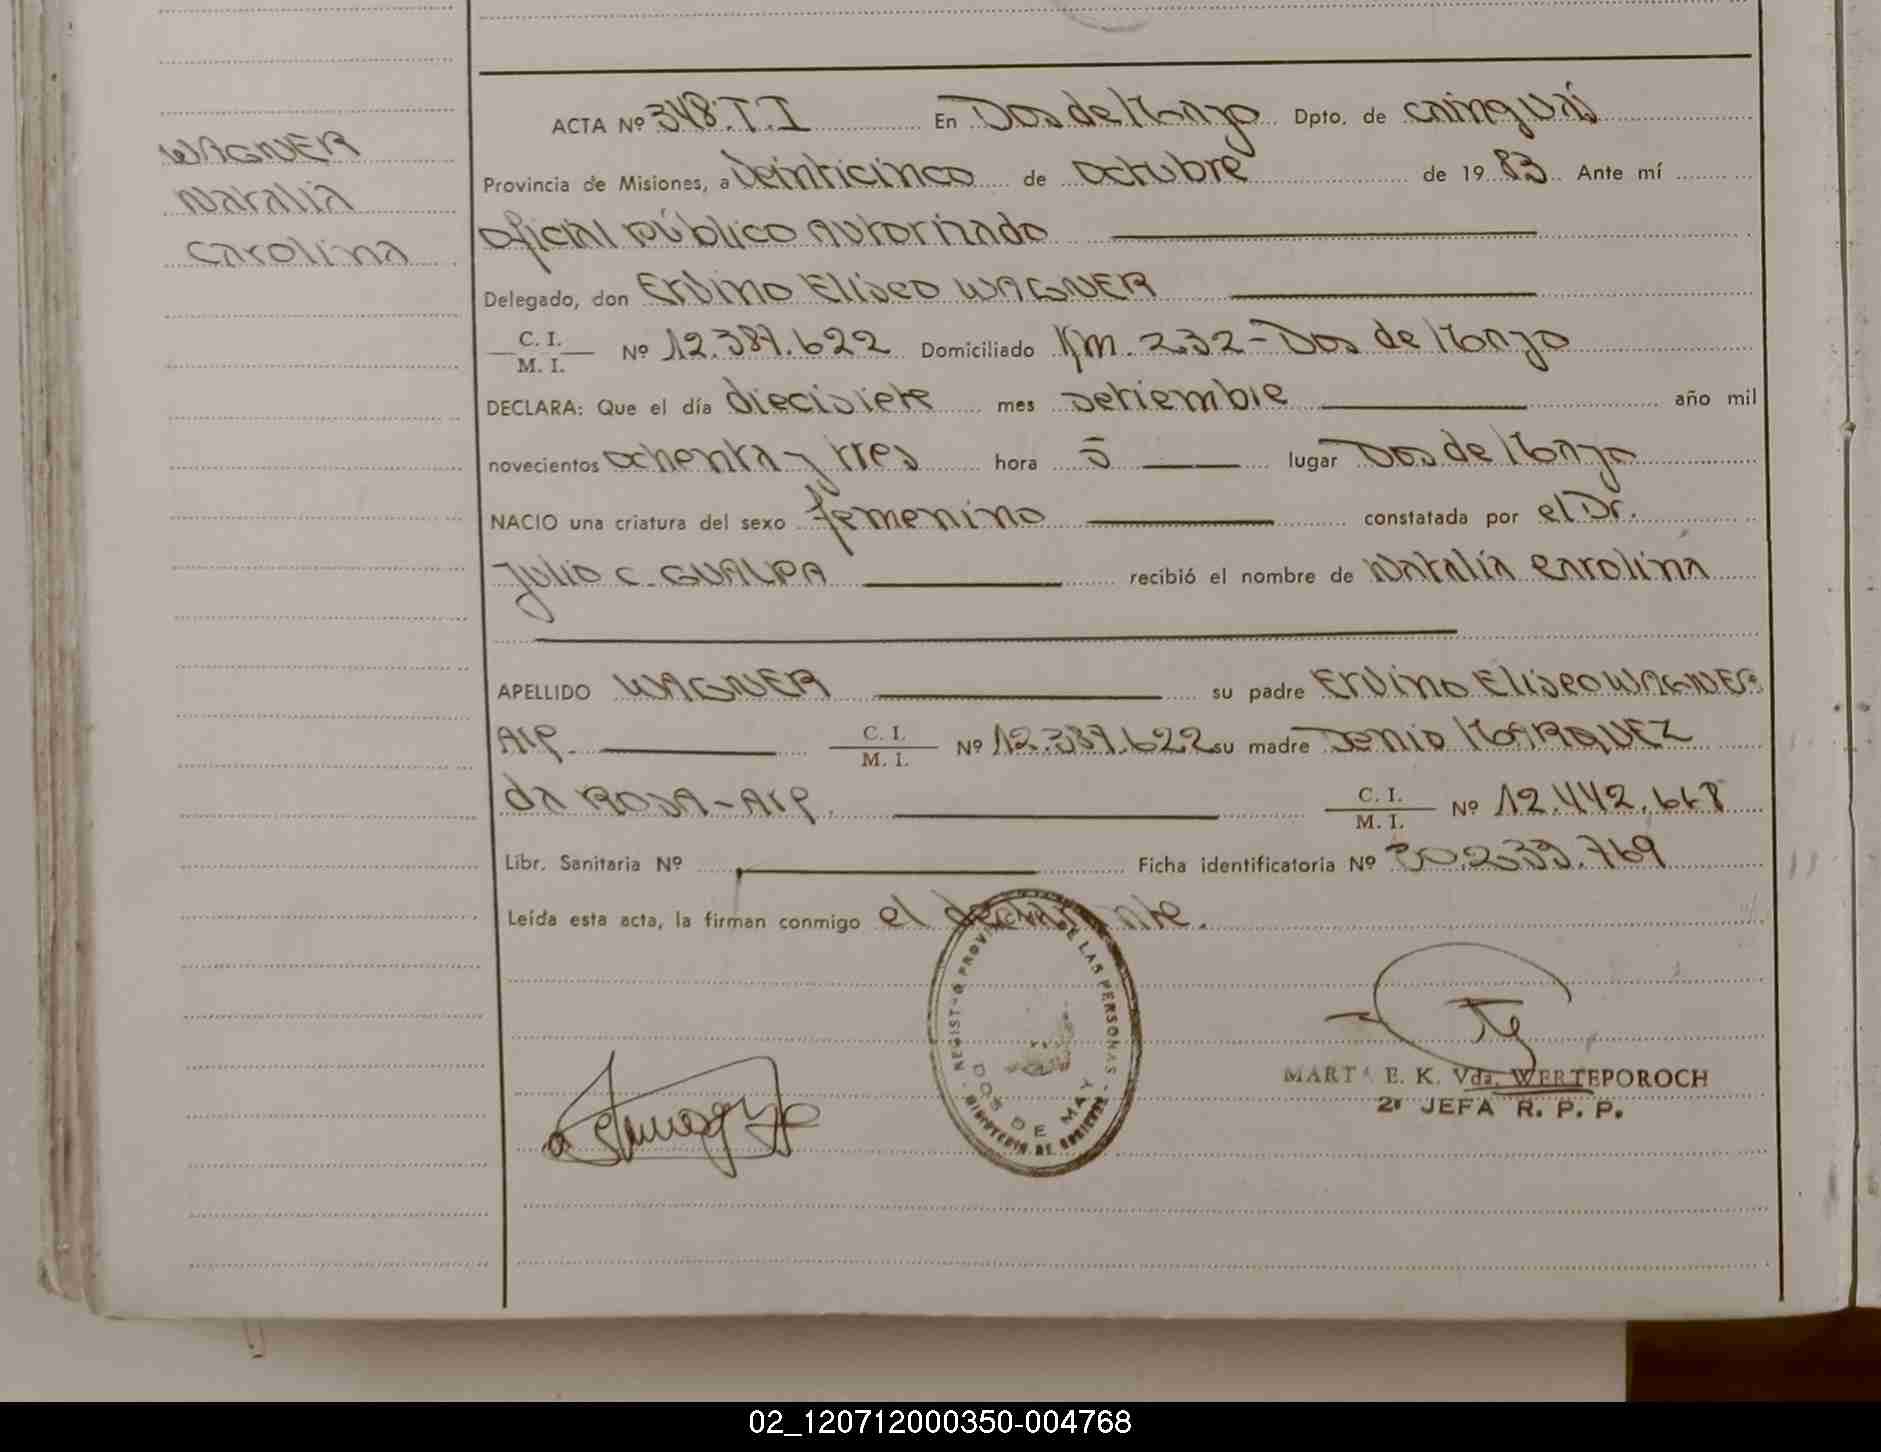 WAGNER
Natalia
Carolina
ACTA Nº 348.T.I En Dos de Mayo Dpto. de Cainguás
Provincia de Misiones, a Veinticinco de Octubre de 1983 Ante mí
Oficial público Autorizado
Delegado, don Ervino Eliseo WAGNER
C. I.
M. I. Nº 12.387.622 Domiciliado Km. 232 - Dos de Mayo
DECLARA: Que el día diecisiete mes setiembre año mil
novecientos ochenta y tres hora 5 lugar Dos de Mayo
NACIO una criatura del sexo femenino constatada por el Dr.
Julio C. GUALPA recibió el nombre de Natalia Carolina
APELLIDO WAGNER su padre Ervino Eliseo WAGNER
Arg. C. I.
M. I. Nº 12.387.622 su madre Jenio MARQUEZ
da ROSA - Arg. C. I.
M. I. Nº 12.442.668
Libr. Sanitaria Nº Ficha identificatoria Nº 30.233.769
Leída esta acta, la firman conmigo el declarante.
REGISTRO PROVINCIAL DE LAS PERSONAS
DOS DE MAYO
MINISTERIO DE GOBIERNO
MARTA E. K. Vda. WERTEPOROCH
2ª JEFA R. P. P.
02_120712000350-004768